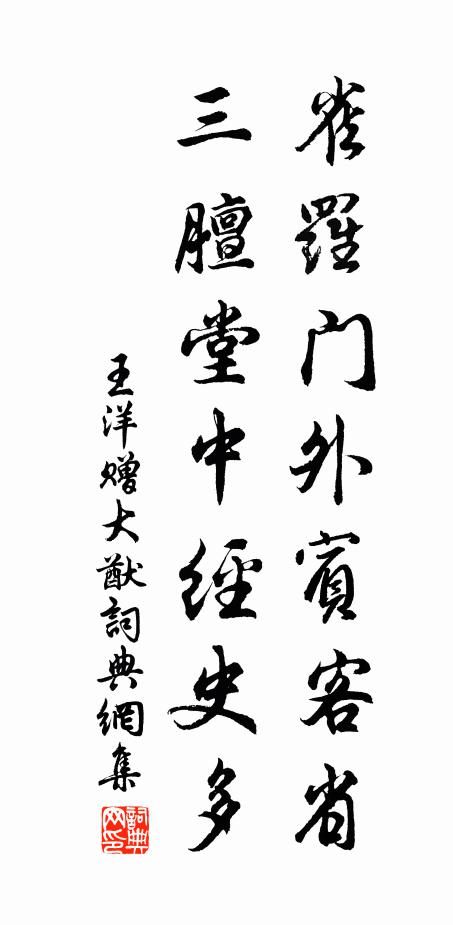 雀羅門外賓客省
三膻堂中經史多
王洋贈大猷詞典網集
詞典網印